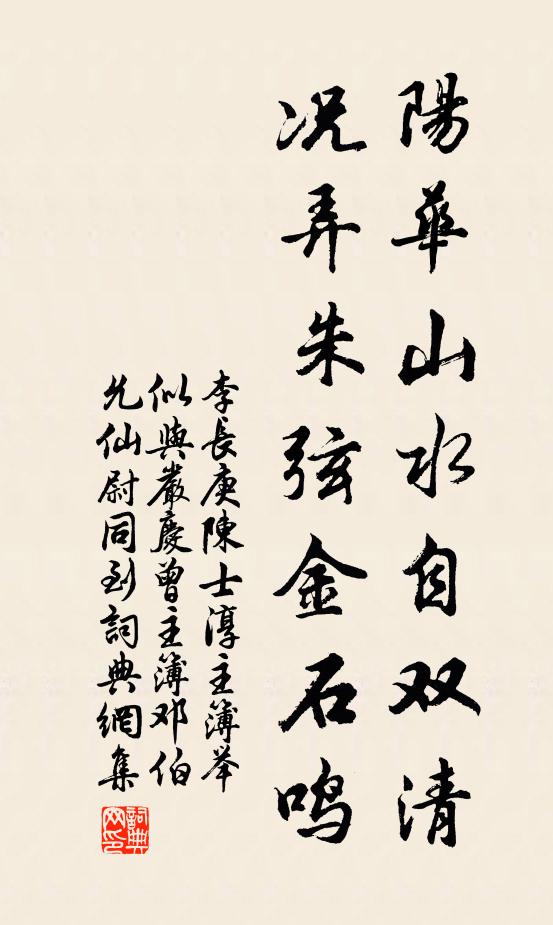 陽華山水自双清
况弄朱弦金石鸣
李長庚陳士淳主簿举
似與嚴慶曾主簿邓伯
允仙尉同到詞典網集
詞典网印